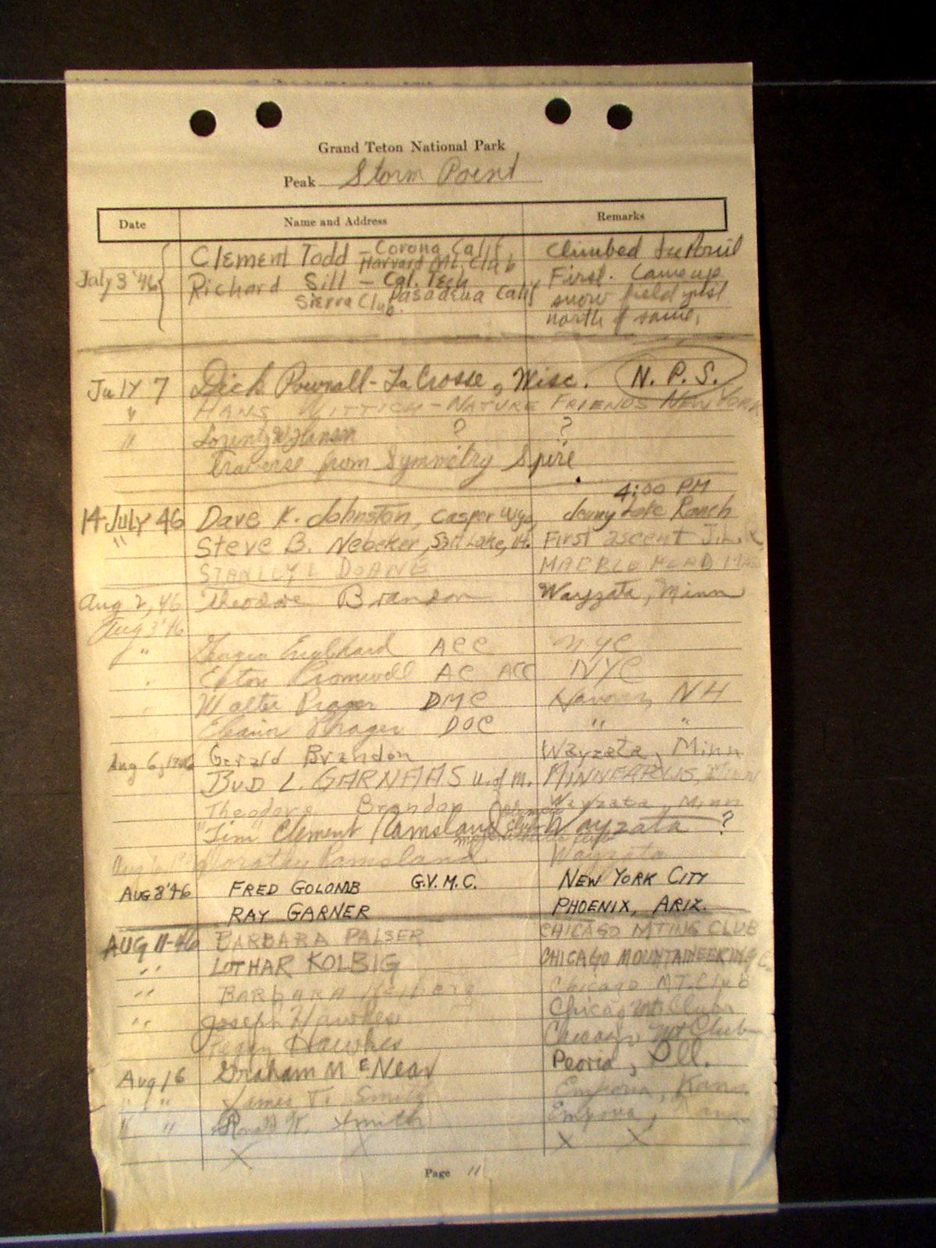 Grand Teton National Park
Peak Storm Point
Date Name and Address Remarks
July 3 '46 Clement Todd - Corona Calif Climbed
Harvard Mt. Club
Richard Sill - Cal. Tech First. Came up
Sierra Club. Pasadena Calif snow field just
north of same.
July 7 Dick Pownall - LaCrosse, Wisc. N. P. S.
" HANS WITTICH - NATURE FRIENDS NEW YORK
" ? ?
Traverse from Symmetry Spire
4:00 PM
14 July 46 Dave K. Johnston, Casper Wyo, Jenny Lake Ranch
" Steve B. Nebeker, Salt Lake, Ut. First ascent J.L.
STANLEY L DOANE
Aug 2, 46 Theodore Brandon Wayzata, Minn
Aug 3 '46
" Georgia Englehard ACC NYC
" Eaton Cromwell AC ACC NYC
" Walter Prager DMC Hanover, NH
Prager DOC " "
Aug 6, 1946 Gerald Brandon Wayzata, Minn
BuD L. GARNAAS U. of M. MINNEAPOLIS, Minn
Theodore Brandon Wayzata, Minn
"Jim" Clement Ramsland Wayzata ?
Dorothy Ramsland Wayzata
AUG 8 '46 FRED GOLOMB G.V.M.C. NEW YORK CITY
RAY GARNER PHOENIX, ARIZ.
AUG 11-46 BARBARA PALSER CHICAGO MTING CLUB
" LOTHAR KOLBIG CHICAGO MOUNTAINEERING C
" BARBARA Chicago MT. Club
" Joseph Hawkes Chicago Mt Club
Peggy Hawkes Chicago Mt Club
Aug 16 Graham McNear Peoria, Ill.
" " James T. Smith Emporia, Kans
" " Ronald W. Smith Emporia,
X X X X
Page 11